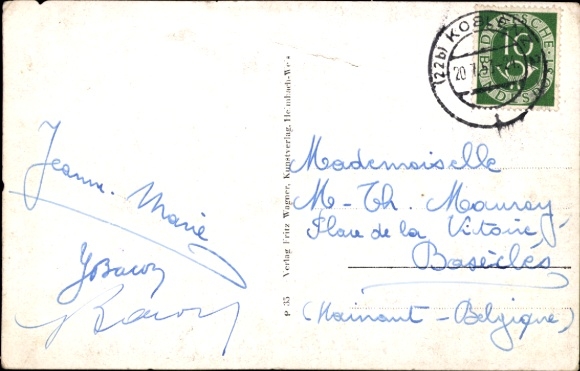 Jeanne-Marie
P 35 Verlag Fritz Wagner, Kunstverlag, Heimbach-We
(22b) KOBLENZ
20.7.
DEUTSCHE BUNDESPOST
10
Mademoiselle
M-Th. Mauroy
Place de la Victoire
Basècles
(Hainaut-Belgique)